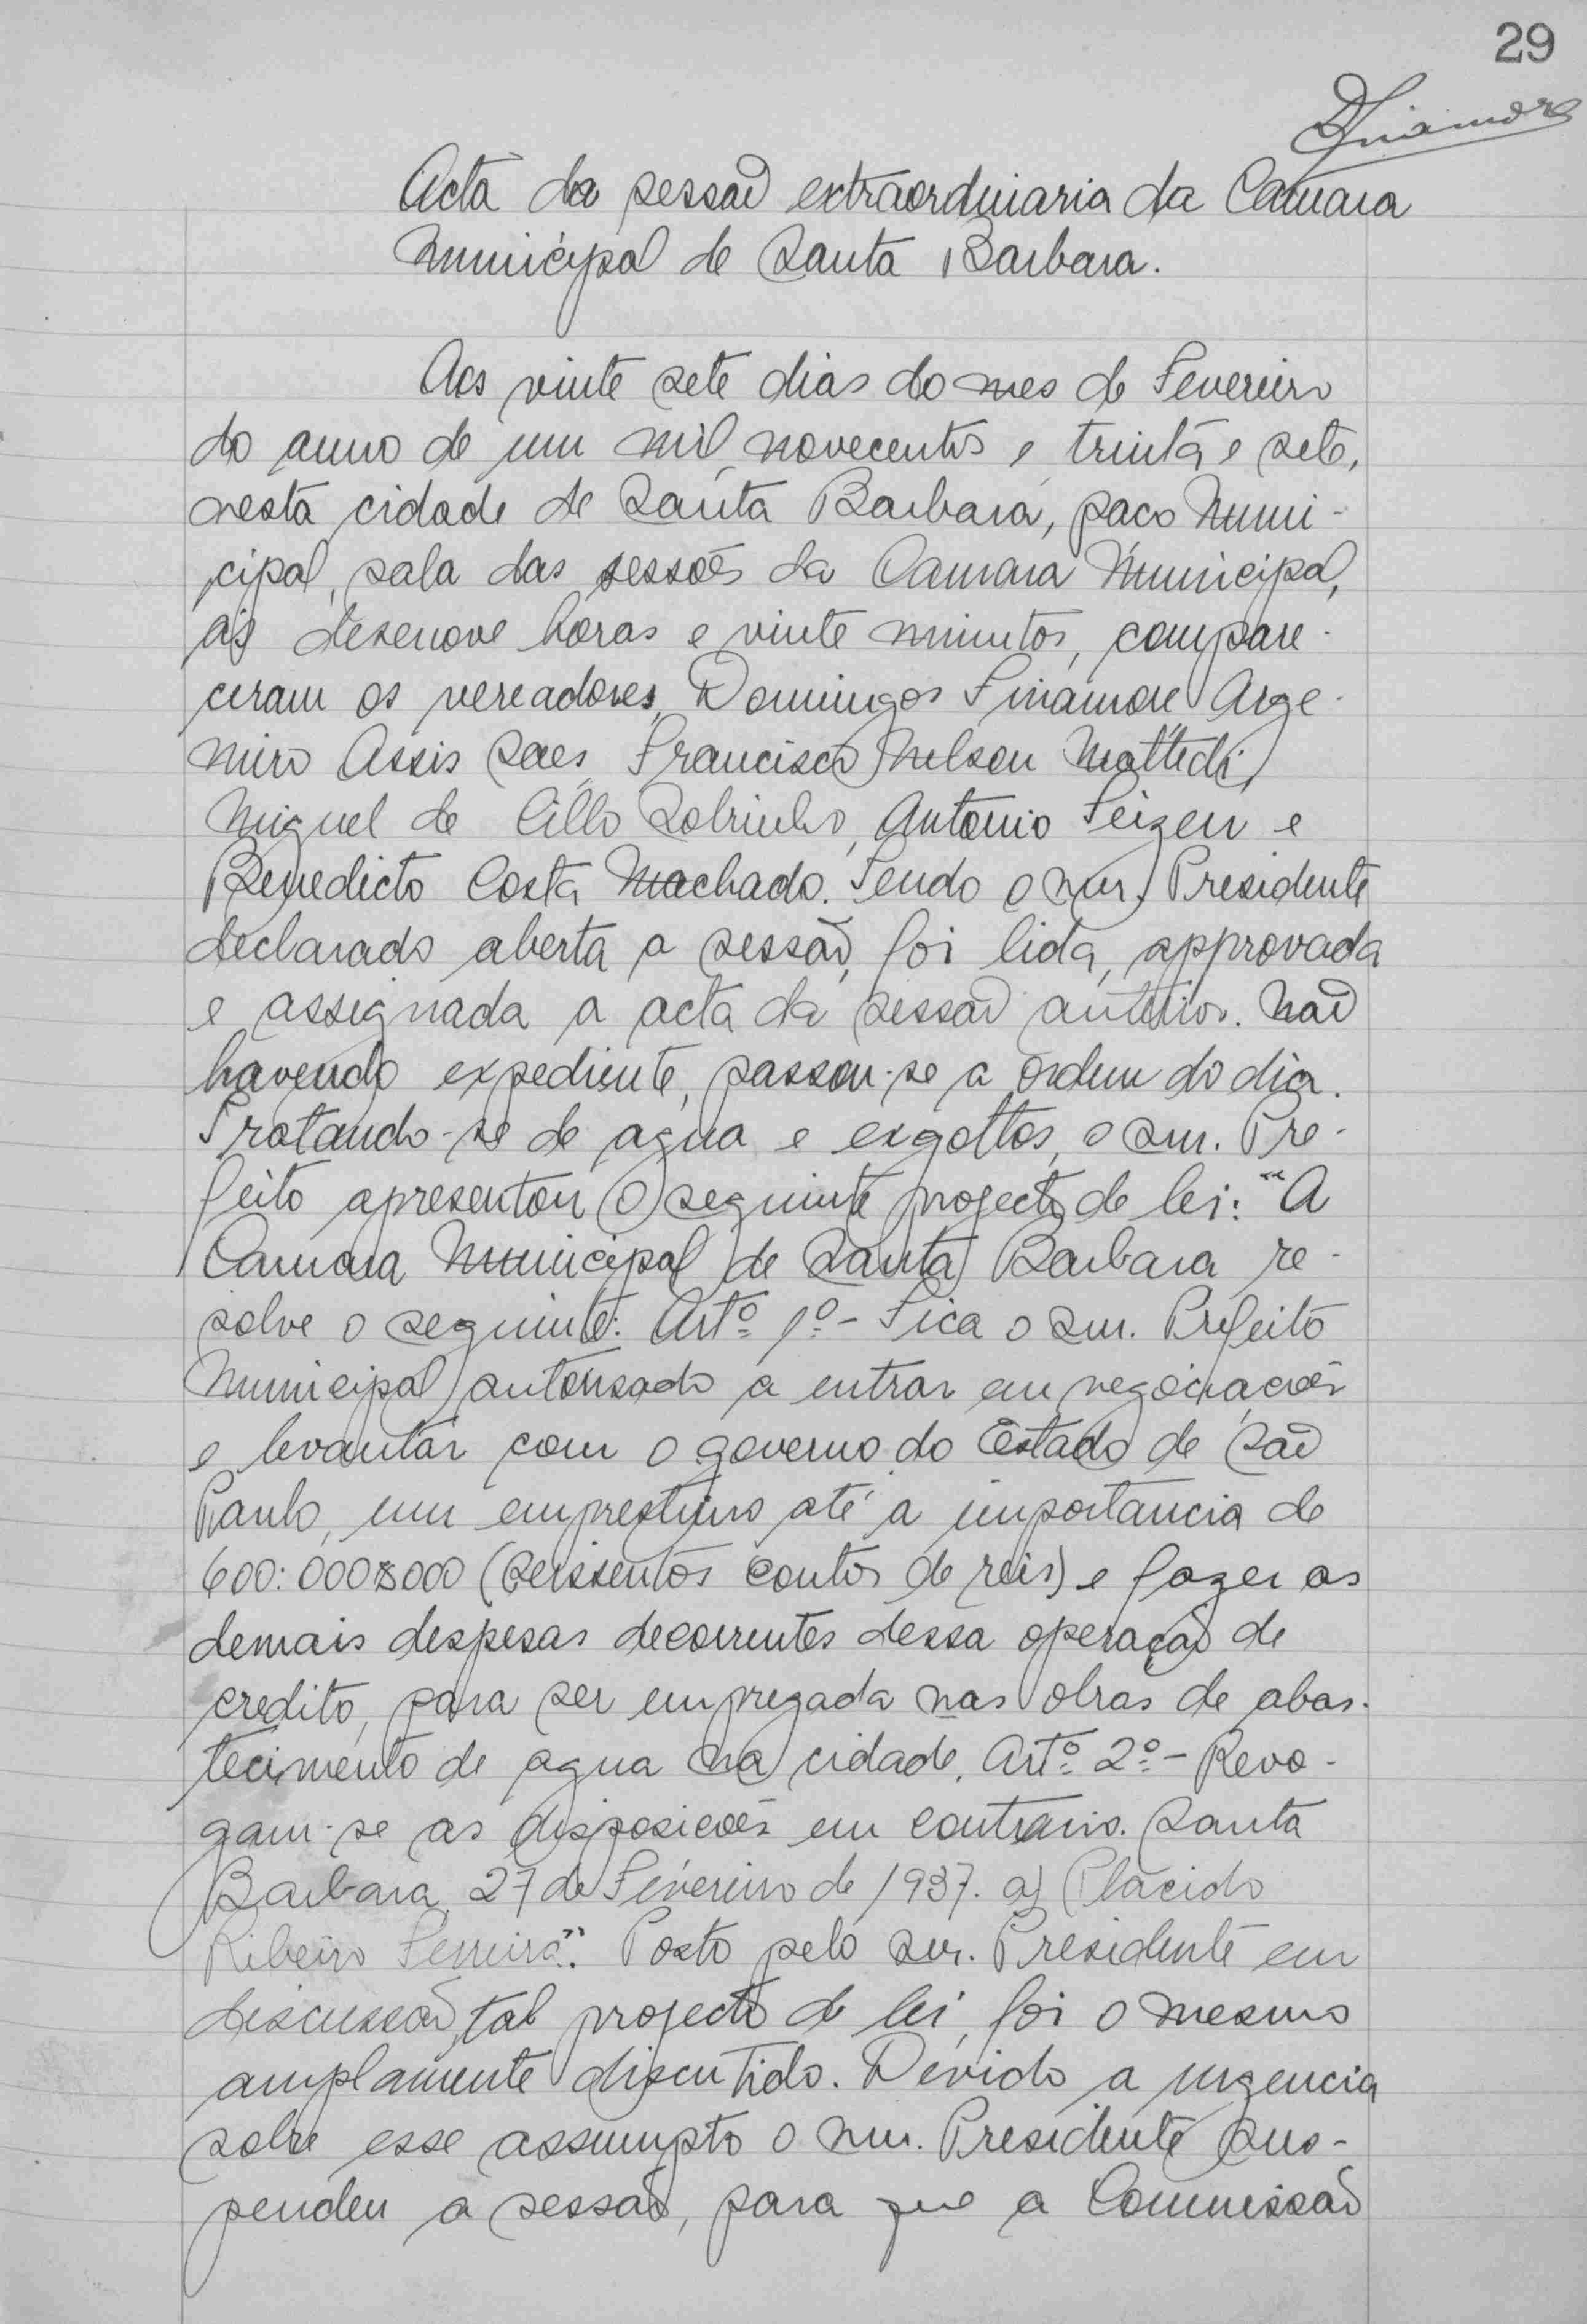 29
DFinamore
Acta da sessão extraordinaria da Camara
Municipal de Santa Barbara.
Aos vinte sete dias do mes de Fevereiro
do anno de um mil novecentos e trinta e sete,
nesta cidade de Santa Barbara, paço Muni-
cipal, sala das sessões da Camara Municipal,
ás desenove horas e vinte minutos, compare-
ceram os vereadores, Domingos Finamore Arge-
miro Assis Saes, Francisco Nelson Mattedi,
Miguel de Cillo Sobrinho, Antonio Feizen e
Benedicto Costa Machado. Tendo o snr. Presidente
declarado aberta a sessão, foi lida, approvada
e assignada a acta da sessão anterior. Não
havendo expediente, passou-se a ordem do dia.
Tratando-se de agua e exgottos, o snr. Pre-
feito apresentou o seguinte projecto de lei: "A
Camara Municipal de Santa Barbara re-
solve o seguinte: Artº 1º - Fica o snr. Prefeito
Municipal autorisado a entrar em negociações
e levantar com o governo do Estado de São
Paulo, um emprestimo até a importancia de
600:000$000 (seissentos contos de reis) e fazer as
demais despesas decorrentes dessa operação de
credito, para ser empregada nas obras de abas-
tecimento de agua na cidade. Artº 2º - Revo-
gam-se as disposições em contrario. Santa
Barbara, 27 de Fevereiro de 1937. a) Placido
Ribeiro Ferreira". Posto pelo snr. Presidente em
discussão, tal projecto de lei, foi o mesmo
amplamente discutido. Devido a urgencia
sobre esse assumpto o snr. Presidente sus-
pendeu a sessão, para que a Commissão